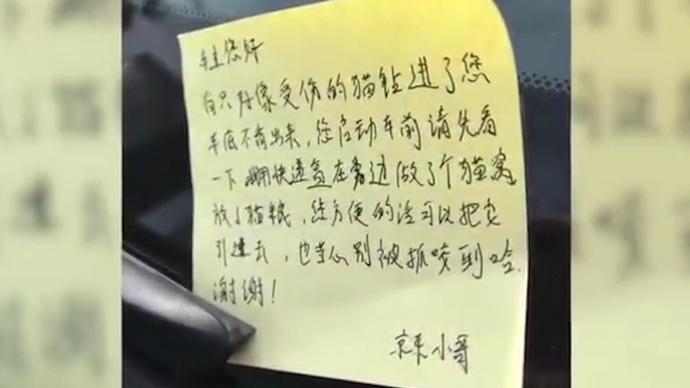 车主您好
有只好像受伤的猫钻进了您
车底不肯出来，您启动车前请先看
一下 我用快递盒在旁边做了个猫窝
放了猫粮，您方便的话可以把它
引进去，也当心别被抓咬到哈
谢谢！
京东小哥